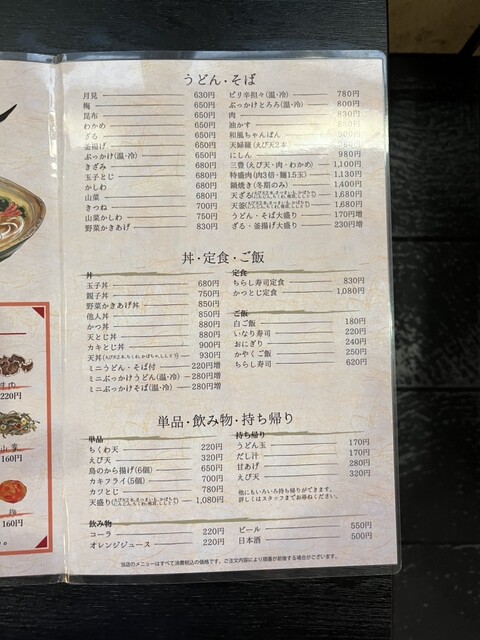 うどん・そば
月見 630円
梅 650円
昆布 650円
わかめ 650円
ざる 650円
釜揚げ 650円
ぶっかけ(温・冷) 650円
きざみ 650円
玉子とじ 680円
かしわ 680円
山菜 680円
きつね 700円
山菜かしわ 750円
野菜かきあげ 830円
ピリ辛担々(温・冷) 780円
ぶっかけとろろ(温・冷) 800円
肉 830円
油かす
和風ちゃんぽん
天婦羅(えび天2本)
にしん 980円
三豊(えび天・肉・わかめ) 1,100円
特盛肉(肉3倍・麺1.5玉) 1,130円
鍋焼き(冬期のみ) 1,400円
天ざる 1,680円
天釜 1,680円
うどん・そば大盛り 170円増
ざる・釜揚げ大盛り 230円増
丼・定食・ご飯
丼
玉子丼 680円
親子丼 750円
野菜かきあげ丼 850円
他人丼 850円
かつ丼 880円
天とじ丼 880円
カキとじ丼 900円
天丼 930円
ミニうどん・そば付 220円増
ミニぶっかけうどん(温・冷) 280円増
ミニぶっかけそば(温・冷) 280円増
定食
ちらし寿司定食 830円
かつとじ定食 1,080円
ご飯
白ご飯 180円
いなり寿司 220円
おにぎり 240円
かやくご飯 250円
ちらし寿司 620円
単品・飲み物・持ち帰り
単品
ちくわ天 220円
えび天 320円
鳥のから揚げ(6個) 650円
カキフライ(5個) 700円
カツとじ 780円
天盛り 1,080円
持ち帰り
うどん玉 170円
だし汁 170円
甘あげ 280円
えび天 320円
他にもいろいろ持ち帰りができます。
詳しくはスタッフまでお尋ねください。
飲み物
コーラ 220円
オレンジジュース 220円
ビール 550円
日本酒 500円
当店のメニューはすべて消費税込の価格です。ご注文内容により順番が前後する場合がございます。
220円
160円
梅
160円